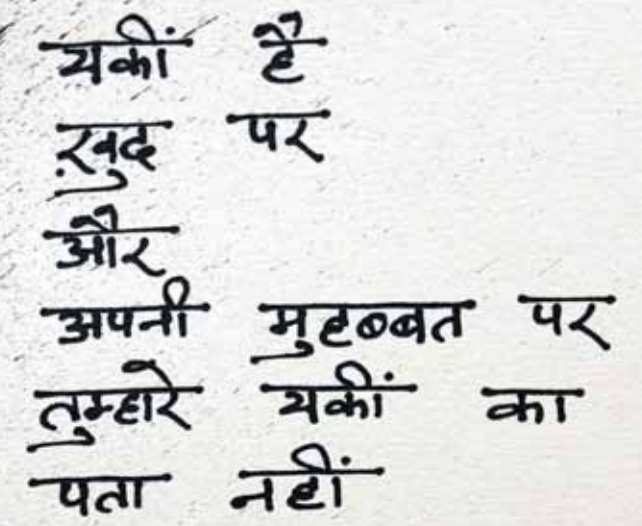 यकीं है
ख़ुद पर
और
अपनी मुहब्बत पर
तुम्हारे यकीं का
पता नहीं